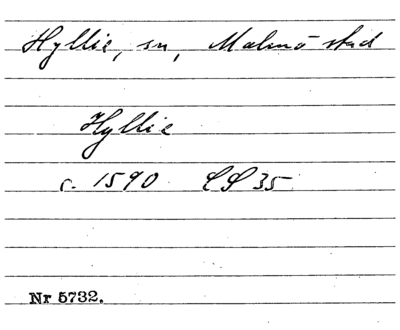 Hyllie, sn, Malmö stad
Hyllie
c. 1590 LP 35
Nr 5732.